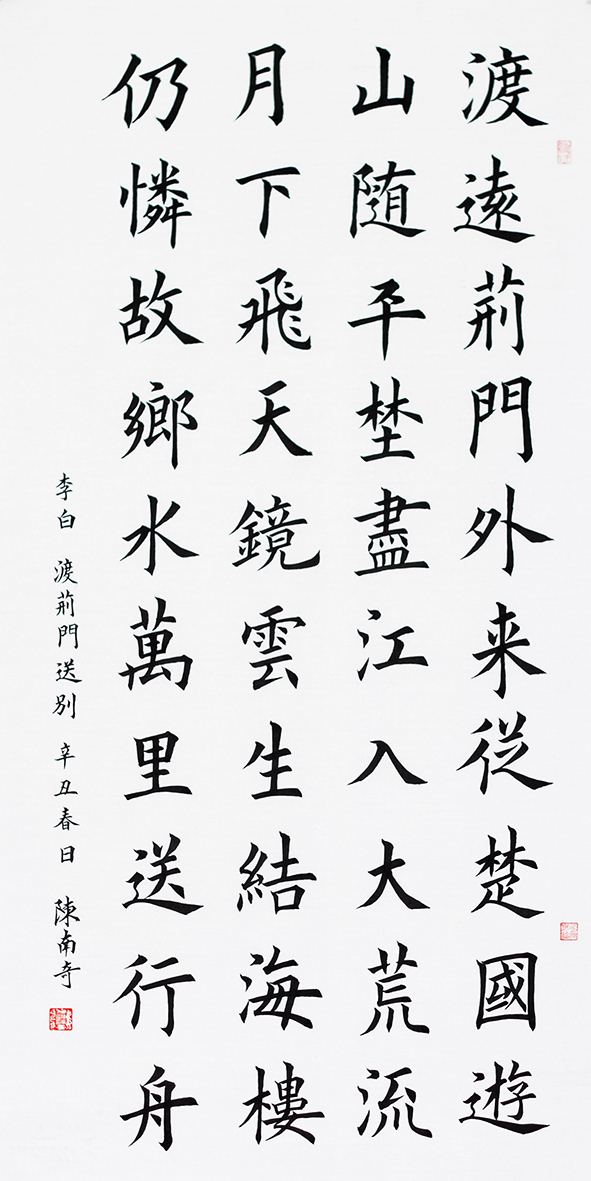 渡遠荊門外来従楚國遊
山随平埜盡江入大荒流
月下飛天鏡雲生結海樓
仍憐故鄉水萬里送行舟
李白 渡荊門送別 辛丑春日 陳南奇